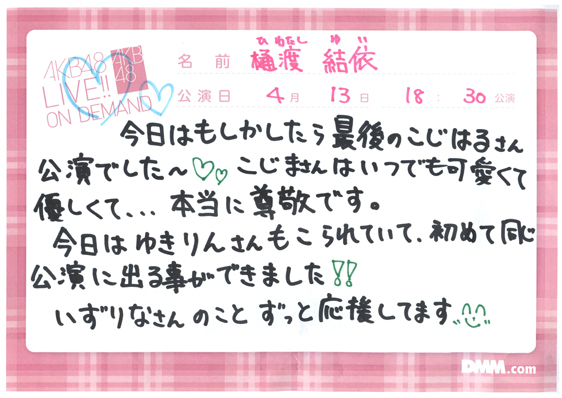 AKB48
LIVE!!
ON DEMAND
AKB
48
ひわたし ゆい
名前 樋渡 結依
公演日 4月 13日 18:30公演
今日はもしかしたら最後のこじはるさん
公演でした〜♡♡ こじまさんはいつでも可愛くて
優しくて、、、本当に尊敬です。
今日はゆきりんさんもこられていて、初めて同じ
公演に出る事ができました!!
いずりなさんのこと ずっと応援してます
DMM.com